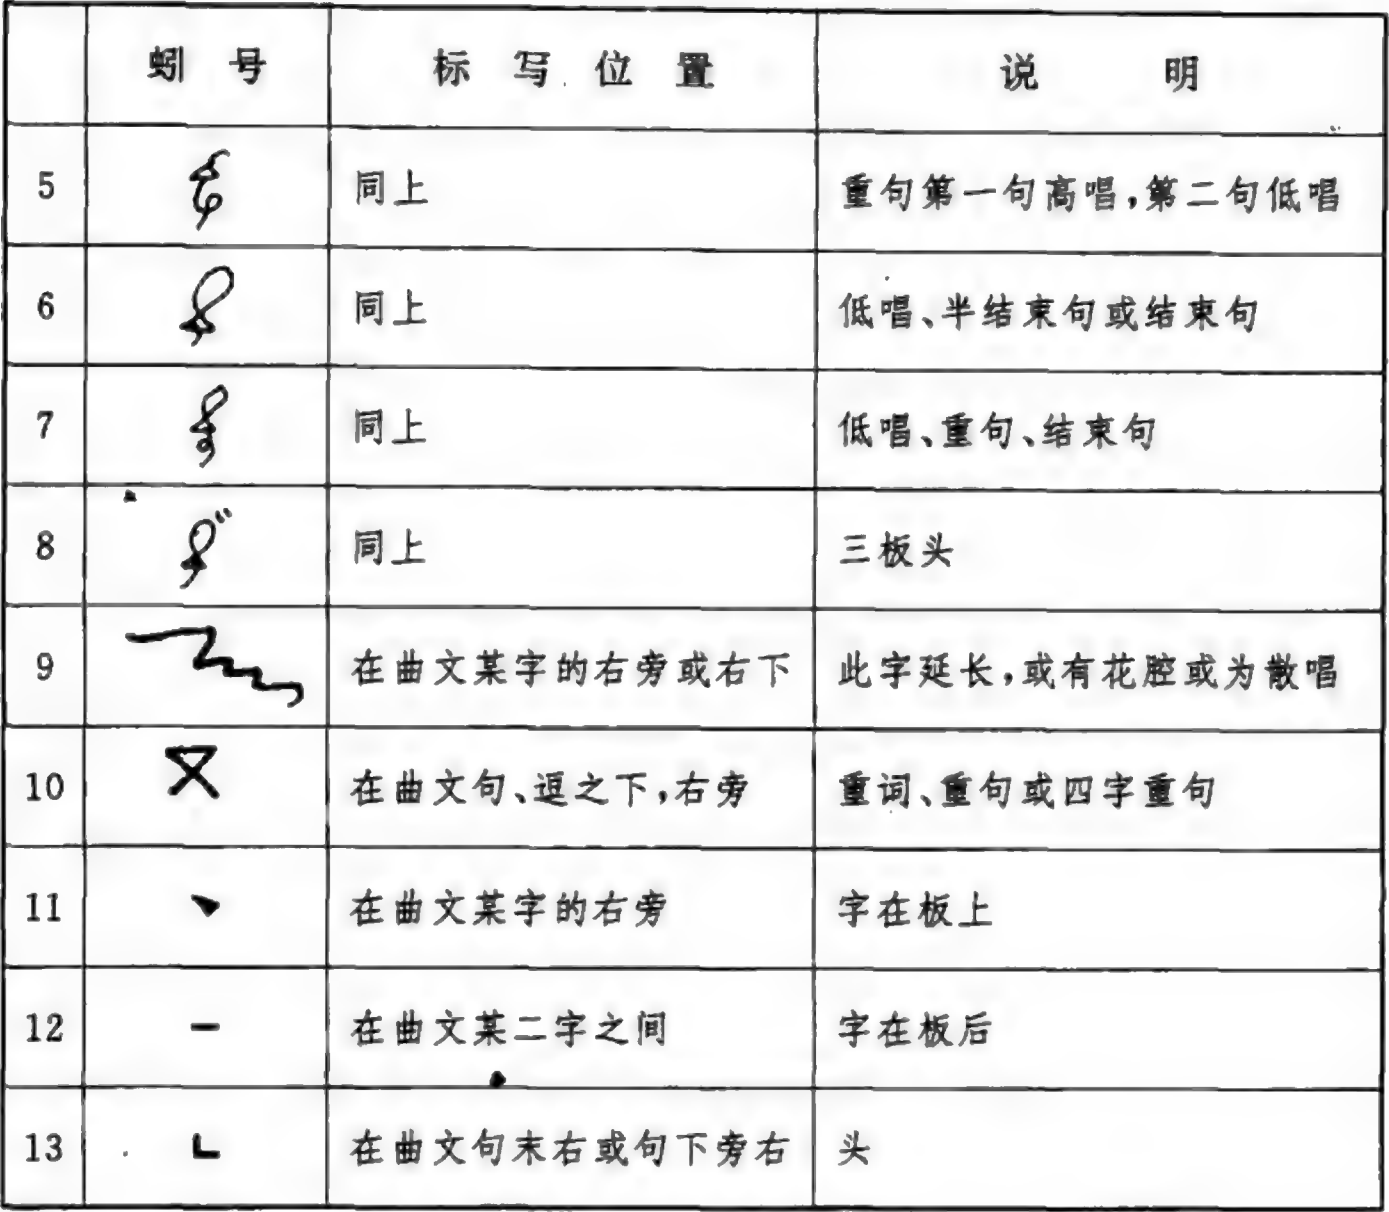 蚓号 标写位置 说明
5 同上 重句第一句高唱,第二句低唱
6 同上 低唱、半结束句或结束句
7 同上 低唱、重句、结束句
8 同上 三板头
9 在曲文某字的右旁或右下 此字延长,或有花腔或为散唱
10 在曲文句、逗之下,右旁 重词、重句或四字重句
11 在曲文某字的右旁 字在板上
12 在曲文某二字之间 字在板后
13 在曲文句末右或句下旁右 头